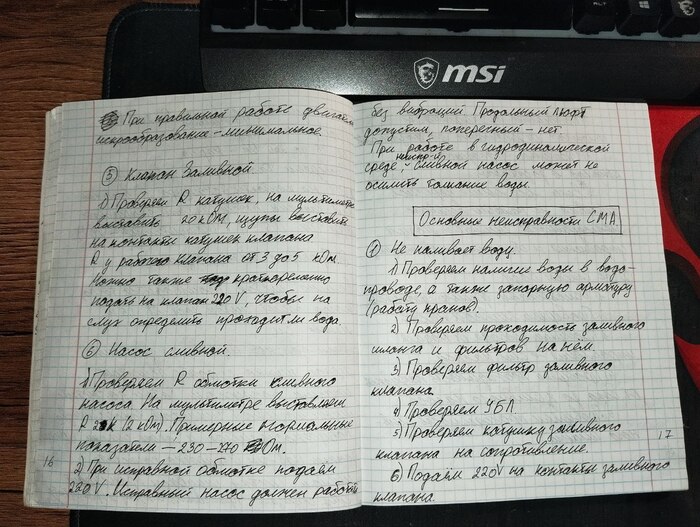 ALT
msi
При правильной работе двигателя
искрообразование - минимальное.
⑤ Клапан Заливной.
1) Проверяем R катушек, на мультиметре
выставить 20 кОм, щупы выставить
на контакты катушек клапана
R у рабочего клапана от 3 до 5 кОм.
Можно также кратковременно
подать на клапан 220 V, чтобы на
слух определить проходит ли вода
⑥ Насос сливной.
1) Проверяем R обмотки сливного
насоса. На мультиметре выставляем
R 2k (2 кОм). Примерные нормальные
показатели - 230-270 Ом.
2) При исправной обмотке подаём
220 V. Исправный насос должен работать
16
без вибраций. Продольный люфт
допустим, поперечный - нет.
При работе в гидродинамической
среде, неиспр-й сливной насос может не
осилить толкание воды.
Основные неисправности СМА
① Не наливает воду.
1) Проверяем наличие воды в водо-
проводе, а также запорную арматуру
(работу кранов).
2) Проверяем проходимость заливного
шланга и фильтров на нём.
3) Проверяем фильтр заливного
клапана.
4) Проверяем УБЛ.
5) Проверяем катушку заливного
клапана на сопротивление.
6) Подаём 220V на контакты заливного
клапана.
17